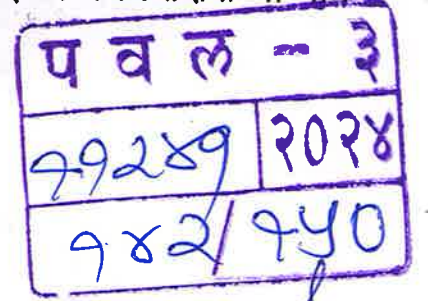 प व ल - ३
११२४१ २०२४
१४२/१५०